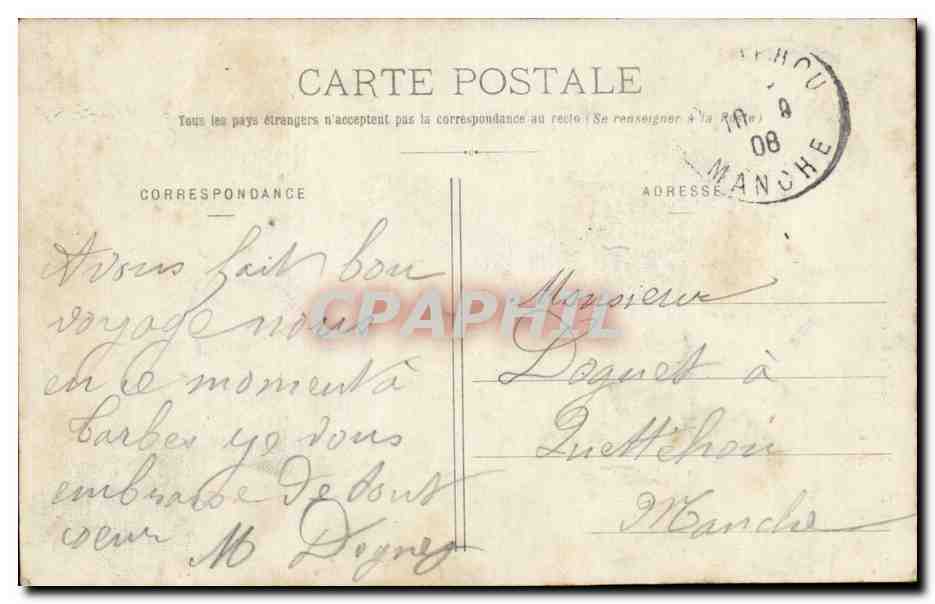 CARTE POSTALE
Tous les pays étrangers n'acceptent pas la correspondance au recto (Se renseigner à la Poste)
EHOU
10 9
08
MANCHE
CORRESPONDANCE
ADRESSE
Avons fait bon
voyage nous
en ce moment à
Tarbes je vous
embrasse de tout
coeur M Doguet
Monsieur
Doguet à
Quettehou
Manche
CPAPHIL